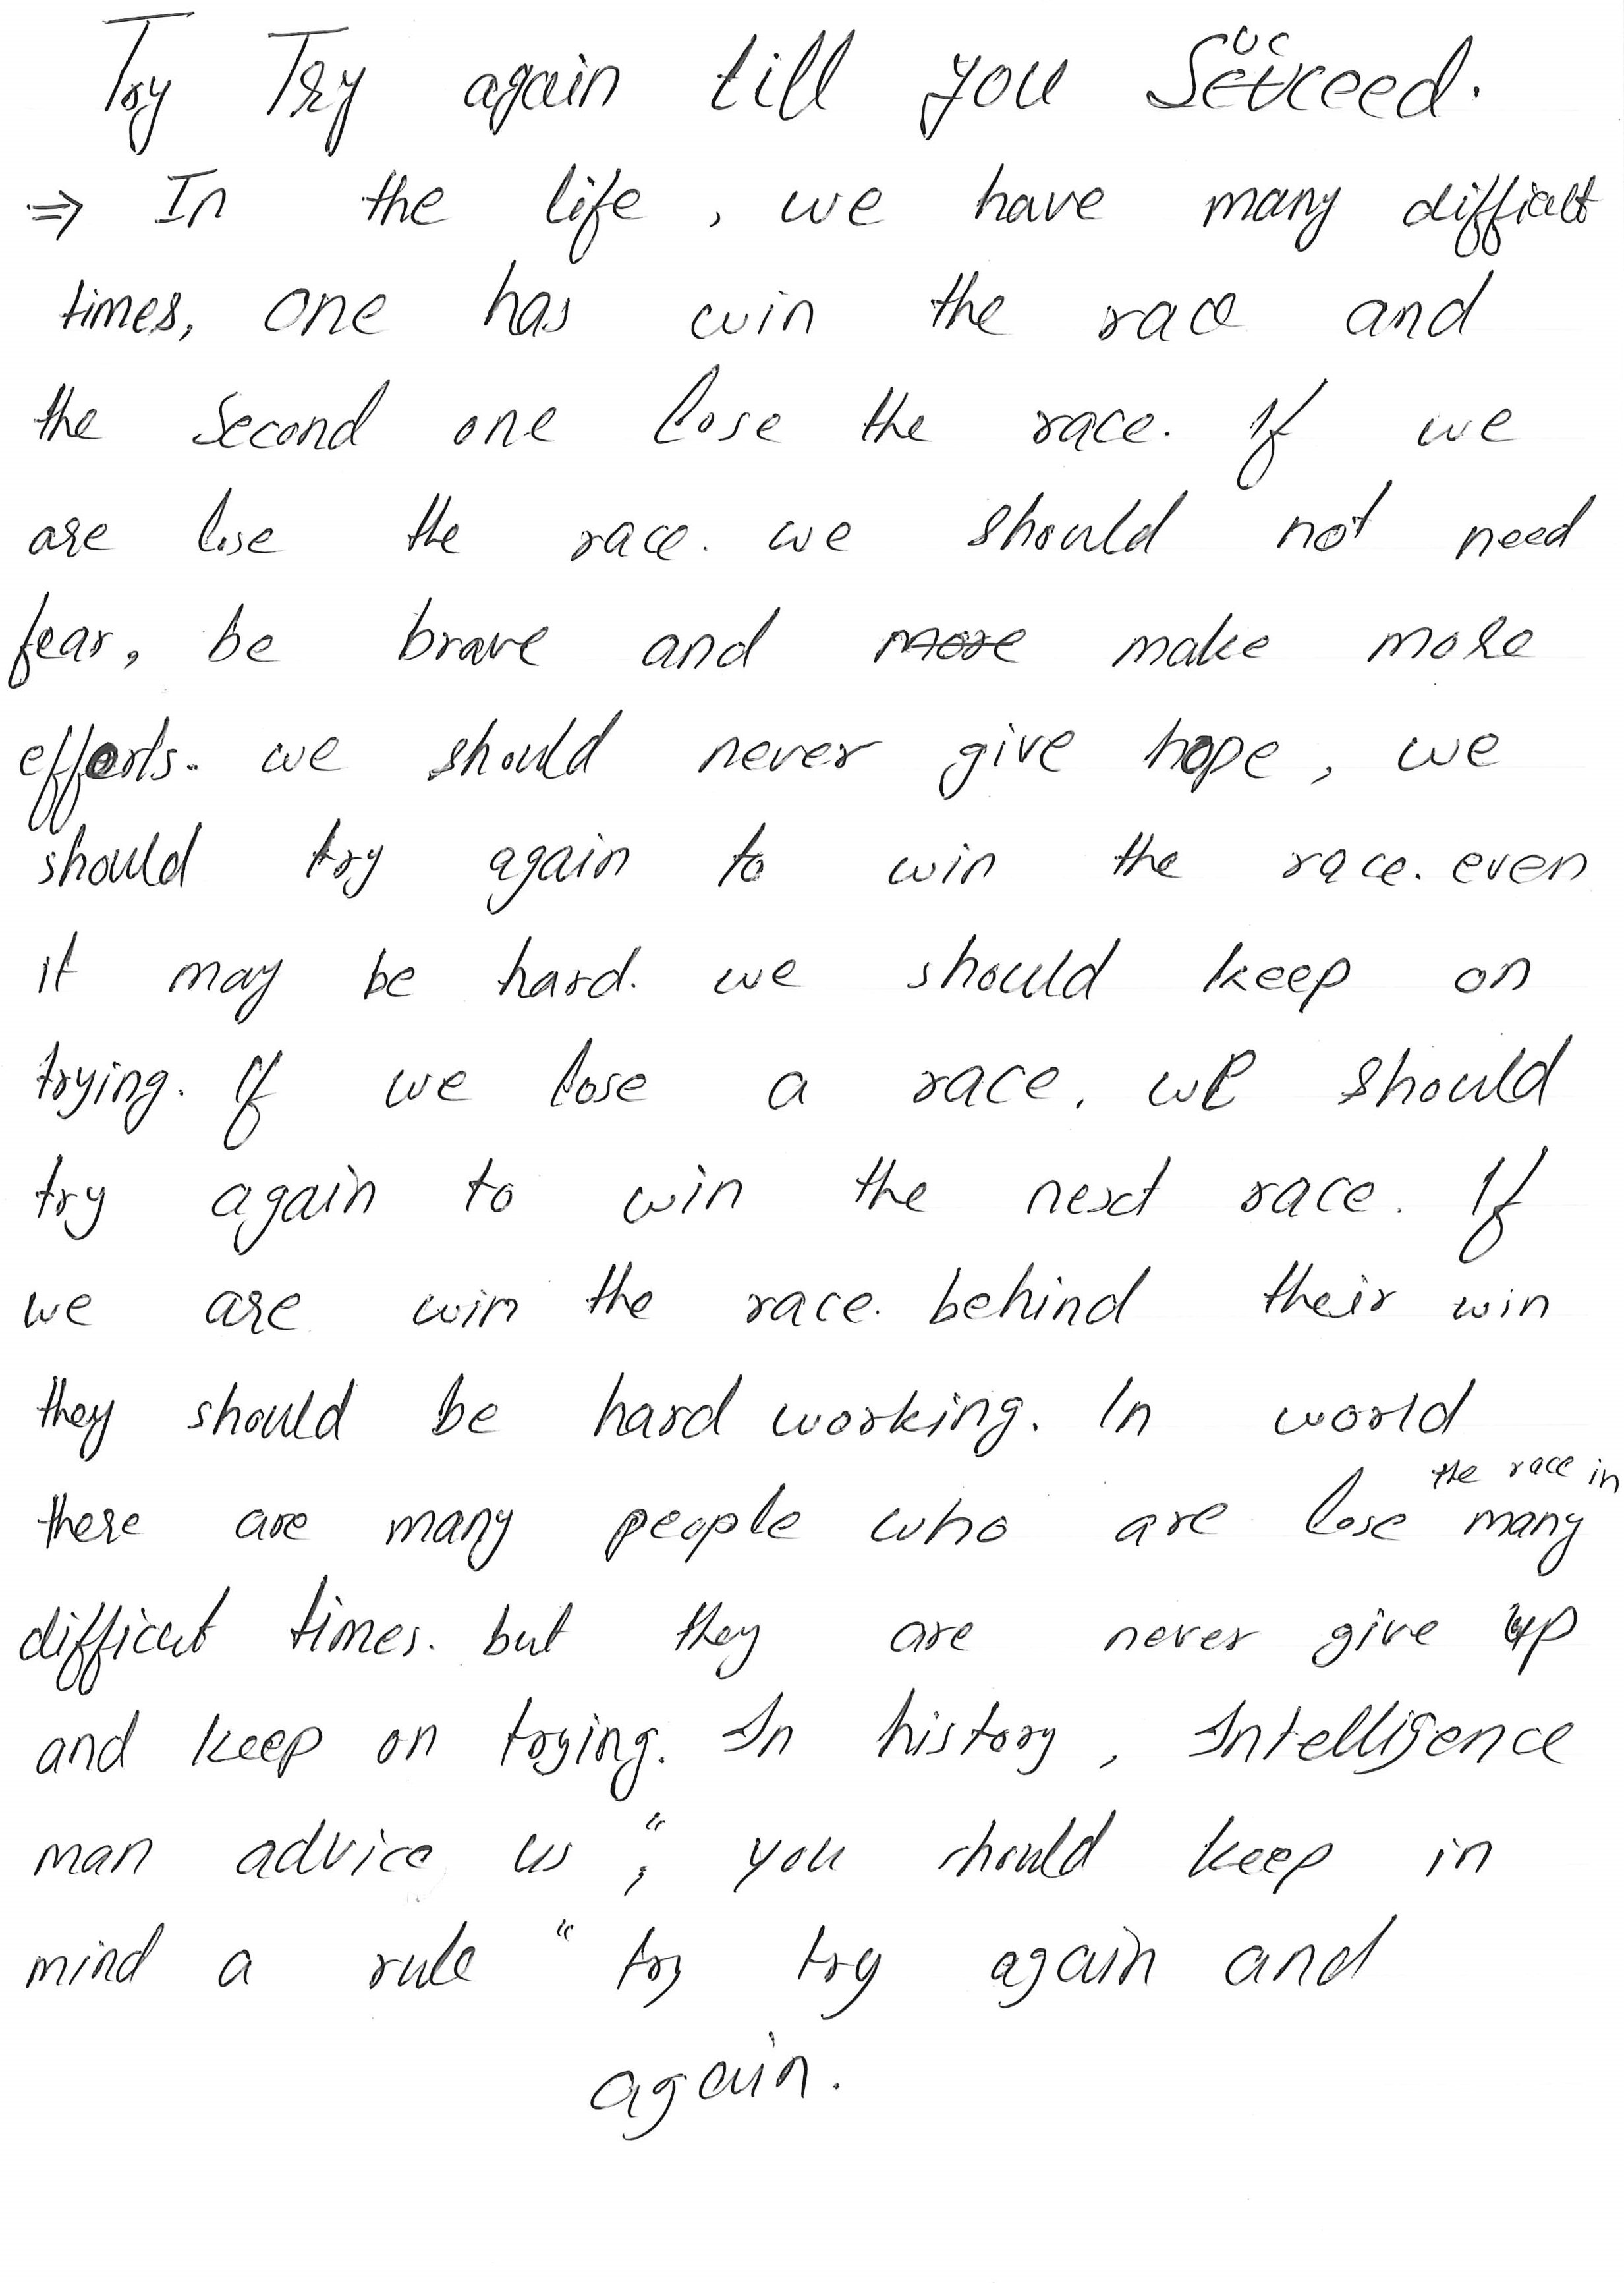 Try Try again till you Succeed.
⇒ In the life, we have many difficult
times, one has win the race and
the Second one lose the race. If we
are lose the race. we should not need
fear, be brave and more make more
efforts. we should never give hope, we
should try again to win the race. even
it may be hard. we should keep on
trying. If we lose a race, we should
try again to win the next race. If
we are win the race. behind their win
they should be hard working. In world
the race in
there are many people who are lose many
difficult times. but they are never give up
and keep on trying. In history, Intelligence
man advice us ", you should keep in
mind a rule " try try again and
again.